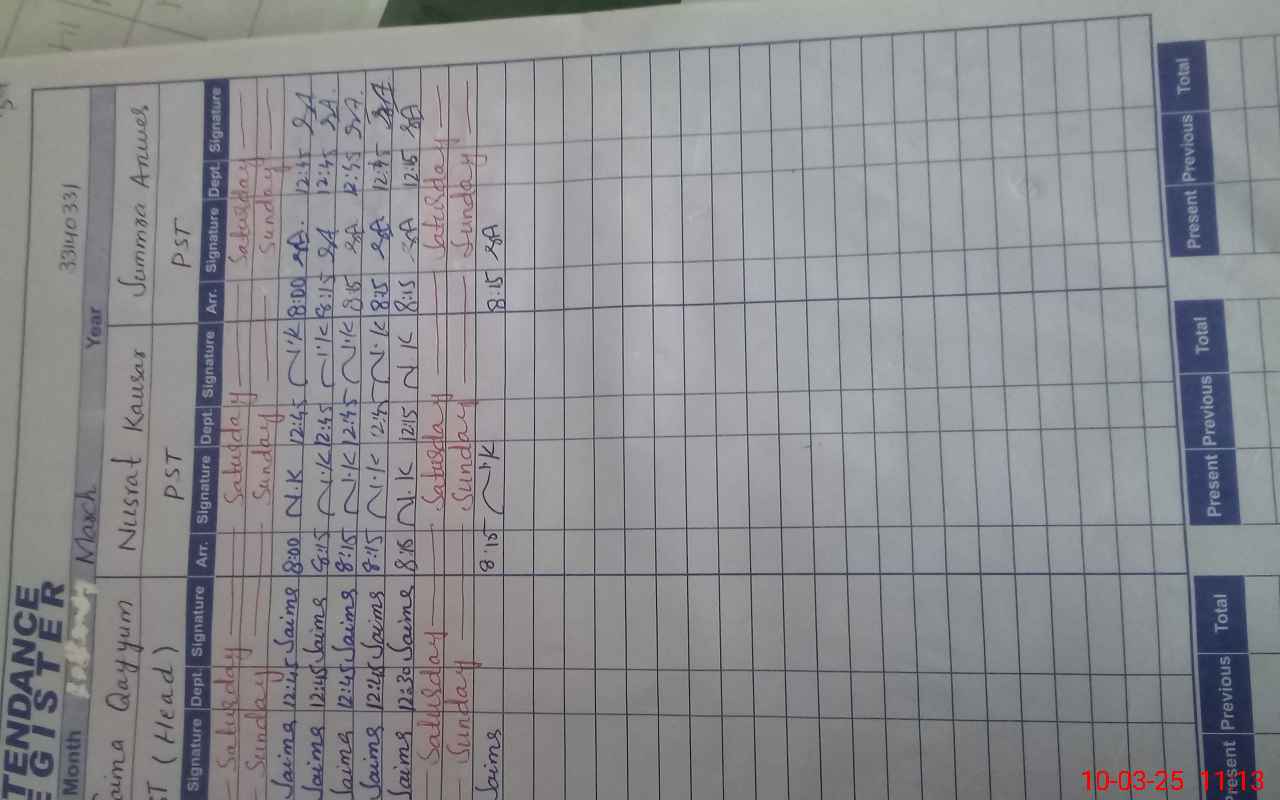 TENDANCE
EGISTER
33140331
Month March Year
aima Qayyum Nusrat Kausar Sumra Anwer
ST (Head) PST PST
Signature Dept. Signature Arr. Signature Dept. Signature Arr. Signature Dept. Signature
Saturday Saturday Saturday
Sunday Sunday Sunday
Saima 12:45 Saima 8:00 N.K 12:45 N.K 8:00 SA. 12:45 SA
Saima 12:45 Saima 8:15 N.K 12:45 N.K 8:15 SA 12:45 SA.
Saima 12:45 Saima 8:15 N.K 12:45 N.K 8:15 SA 12:45 SA.
Saima 12:45 Saima 8:15 N.K 12:45 N.K 8:15 SA 12:45 SA
Saima 12:30 Saima 8:15 N.K 12:15 N.K 8:15 SA 12:15 SA
Saturday Saturday Saturday
Sunday Sunday Sunday
Saima 8:15 N.K 8:15 SA
Present Previous Total Present Previous Total Present Previous Total
10-03-25 11:13